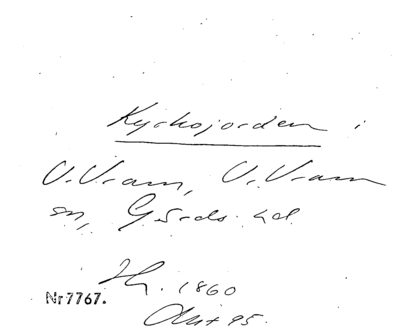 Kyrkojorden i
V. Vram, V. Vram
sn, Gärds hd
Hg. 1860
Nr 7767.
Okt 95.